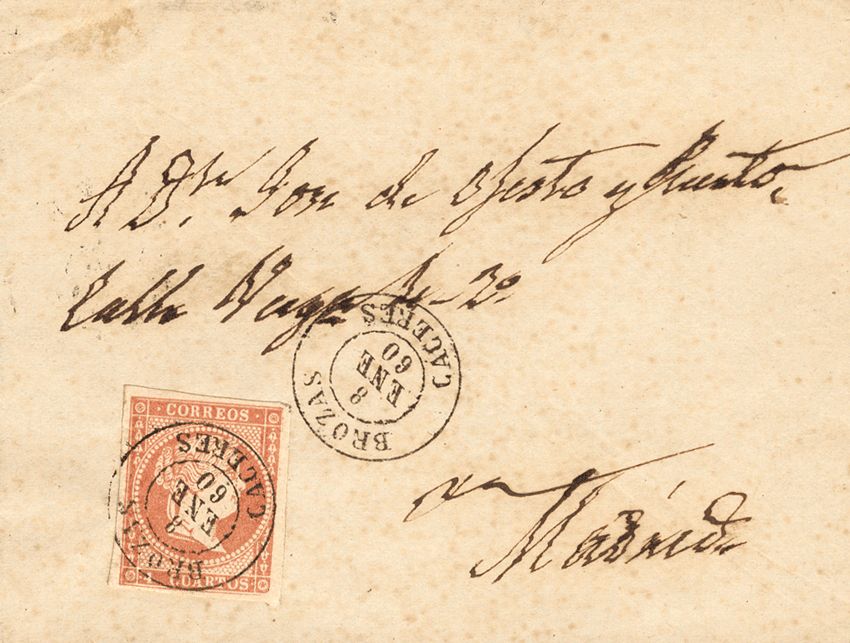 A Dn. Jose de Osesto y Puerto,
Calle
2º
CACERES
8
ENE
60
BROZAS
CORREOS
CACERES
8
ENE
60
BROZAS
CUARTOS
en
Madrid